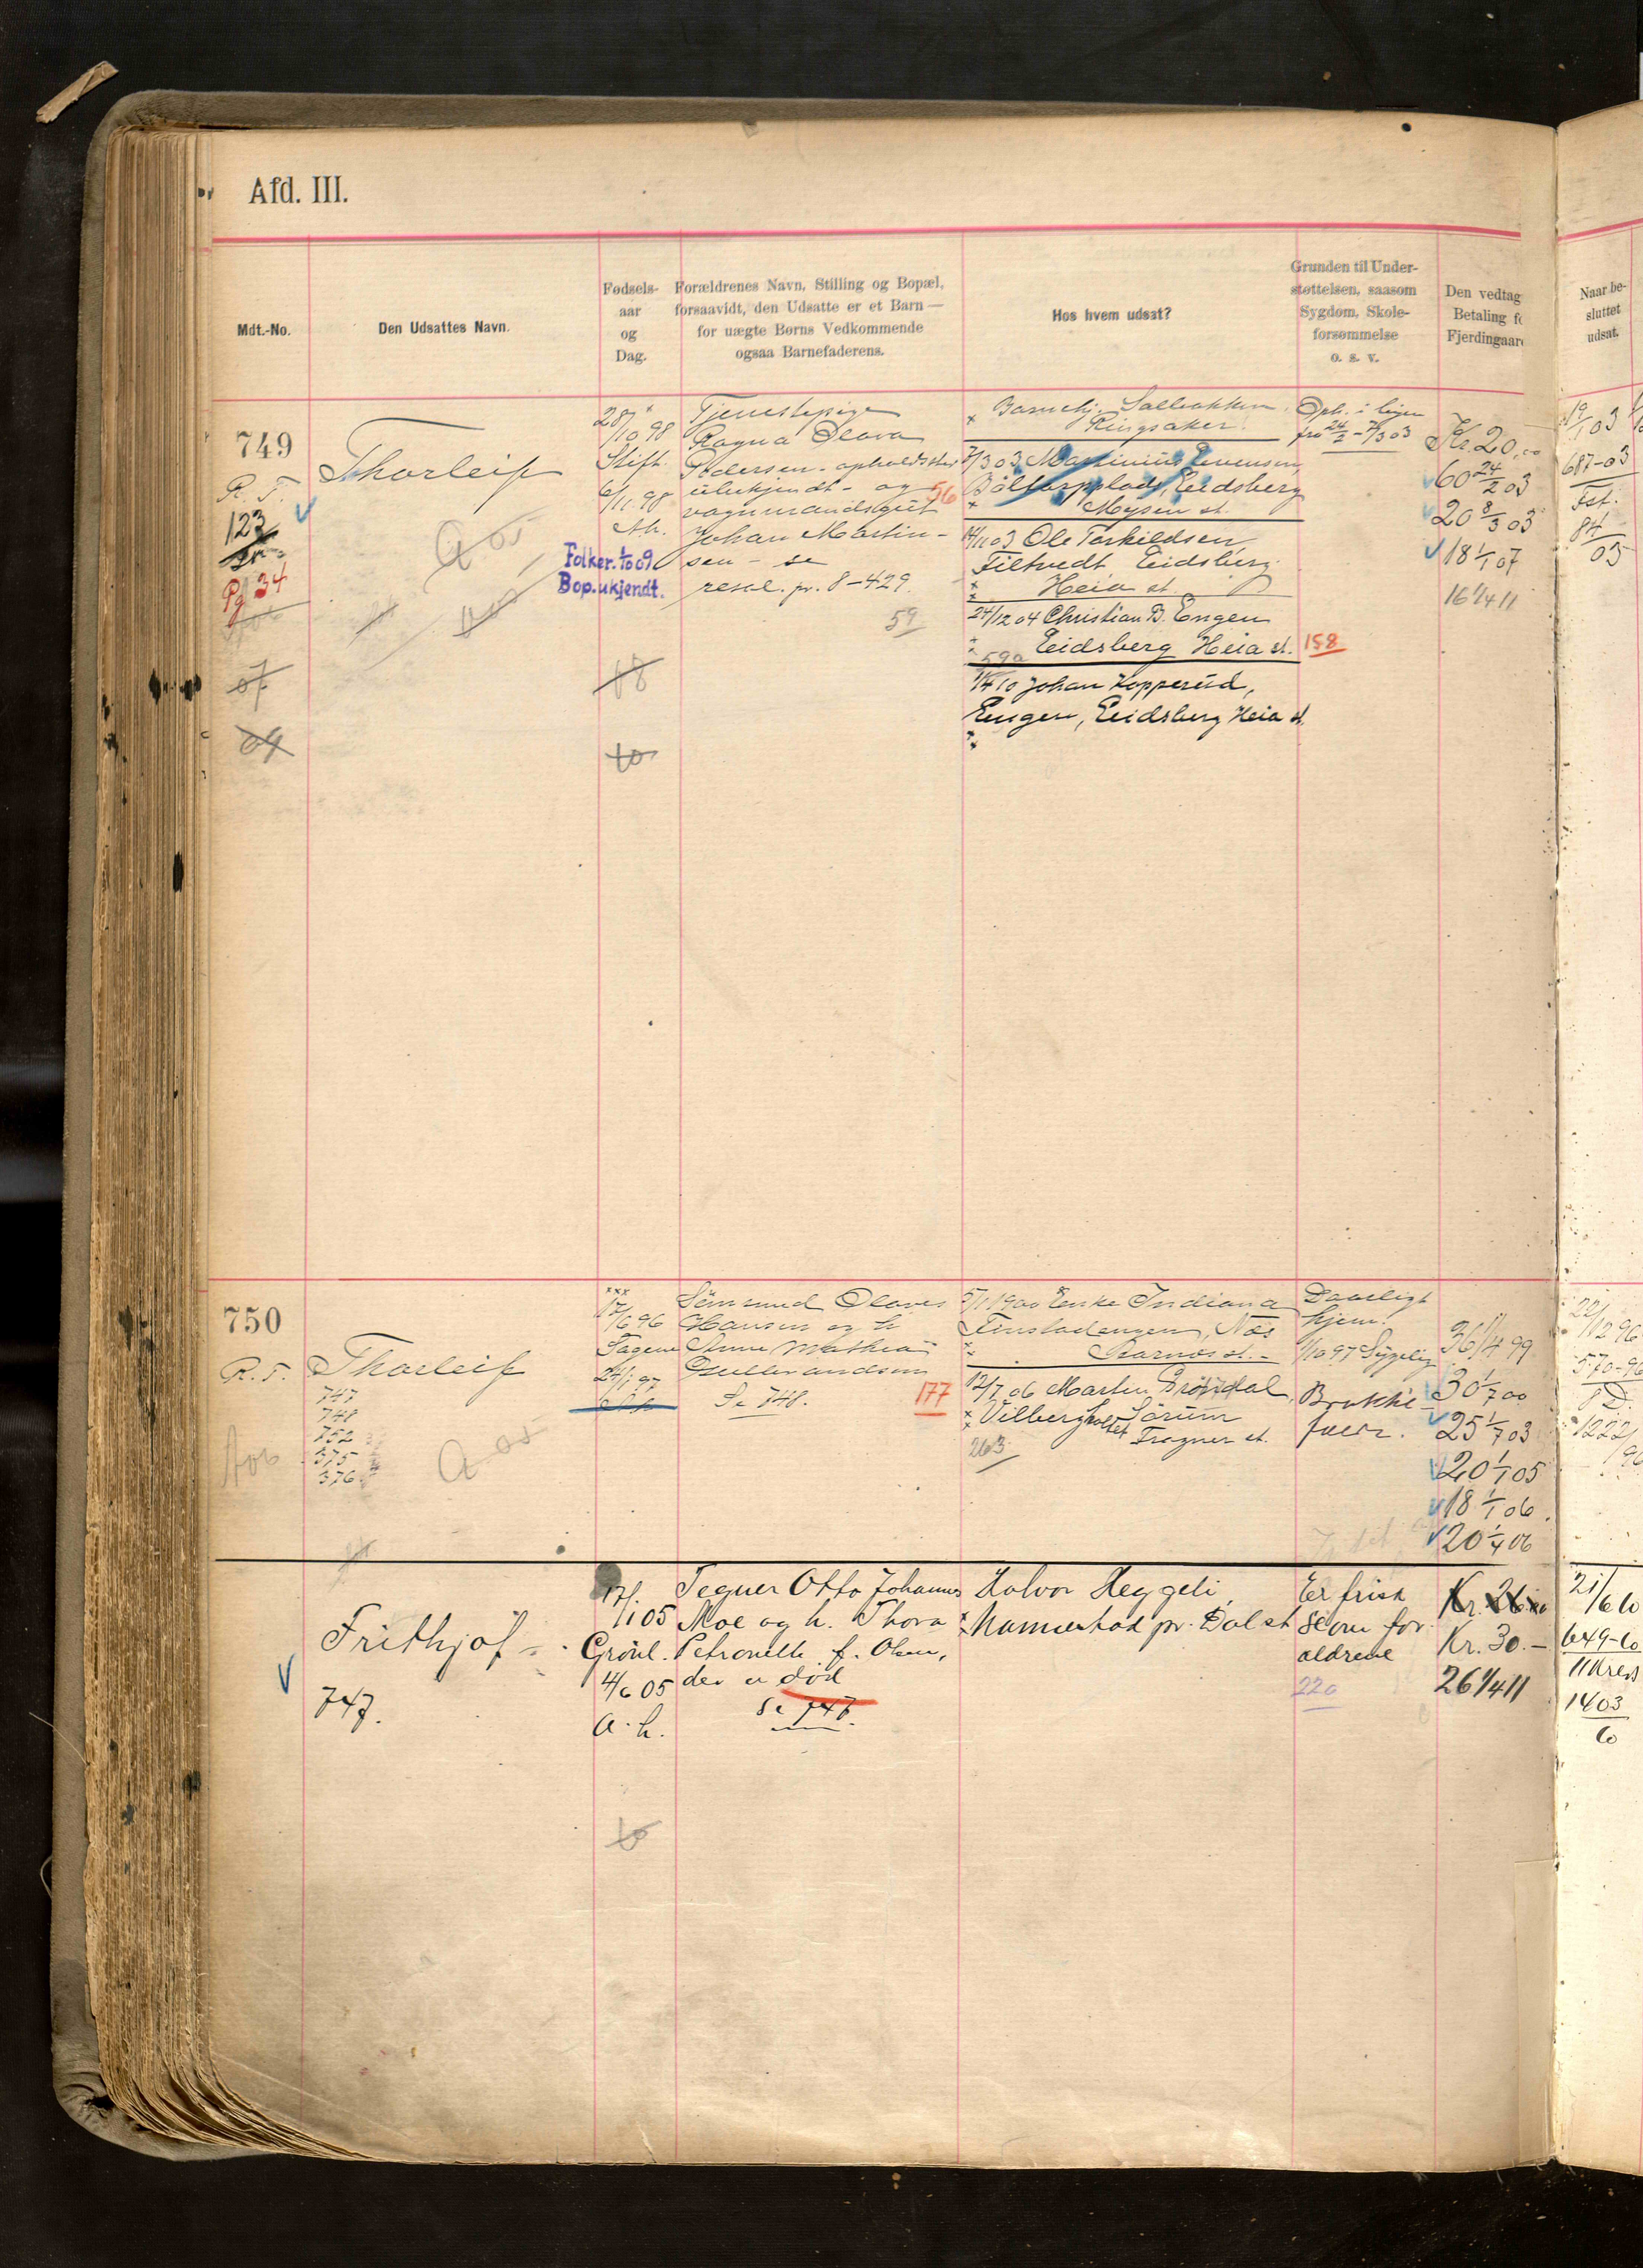 Afd. III.
Mdt.-No.
Den Udsattes Navn.
Fødsels-
aar
og
Dag.
Forældrenes Navn, Stilling og Bopæl,
forsaavidt, den Udsatte er et Barn —
for uægte Børns Vedkommende
ogsaa Barnefaderens.
Hos hvem udsat?
Grunden til Under-
støttelsen, saasom
Sygdom, Skole-
forsømmelse
o. s. v.
Den vedtag
Betaling fo
Fjerdingaar
Naar be-
sluttet
udsat.
749
R. F.
123
Pg 34
07
09
Thorleif
28/10 98
Stift.
6/11 98
Folker. 1/10 09
Bop. ukjendt.
08
10
Tjenestepige
Ragna Olava
Pedersen - opholdssted
ubekjendt - og
vognmandsgut
Johan Martin-
sen - se
resol. pr. 8-429.
56
59
Barnehj. Solbakken
Ringsaker.
7/3 03 Martinius Evensen
Eidsberg
Mysen st.
14/11 03 Ole Torkildsen
Filtvedt Eidsberg.
Heia st.
24/12 04 Christian B. Engen
Eidsberg Heia st.
158
59a
1/4 10 Johan Kopperud,
Engen, Eidsberg Heia st.
Oph. i byen
fra 24/2 - 7/3 03
Kr. 20.00
60 24/2 03
20 8/3 03
18 1/1 07
16 1/4 11
19/1 03
687-03
Fst.
84
03
750
R. F.
Thorleif
747
748
752
375
376
17/6 96
Fagene
24/1 97
Simund Olaves
Hansen og h.
Anne Mathea
Gulbrandsen
Se 748.
177
5/1 1900 Enke Indiana
Finstadengen, Nes
Aarnes st.
12/7 06 Martin Brøttdal,
Vilbergholtet Sørum
Frogner st.
263
Daarligt
hjem.
1/10 97 Sygelig
36 1/4 99
30 1/7 00
25 1/7 03
20 1/1 05
18 1/1 06
20 1/4 06
22/12 96
570-96
1222/96
Frithjof
747.
17/1 05
Grønl.
4/6 05
a. h.
10
Tegner Otto Johannes
Moe og h. Thora
Petronelle f. Olsen,
der er død
Se 747.
Halvor Heggeli,
Mannerhod pr. Dal st
Er frisk
Som for-
ældrene
220
Kr. 26.00
Kr. 30.-
26 1/4 11
21/6 10
649-10
11 Kreds
1403
10